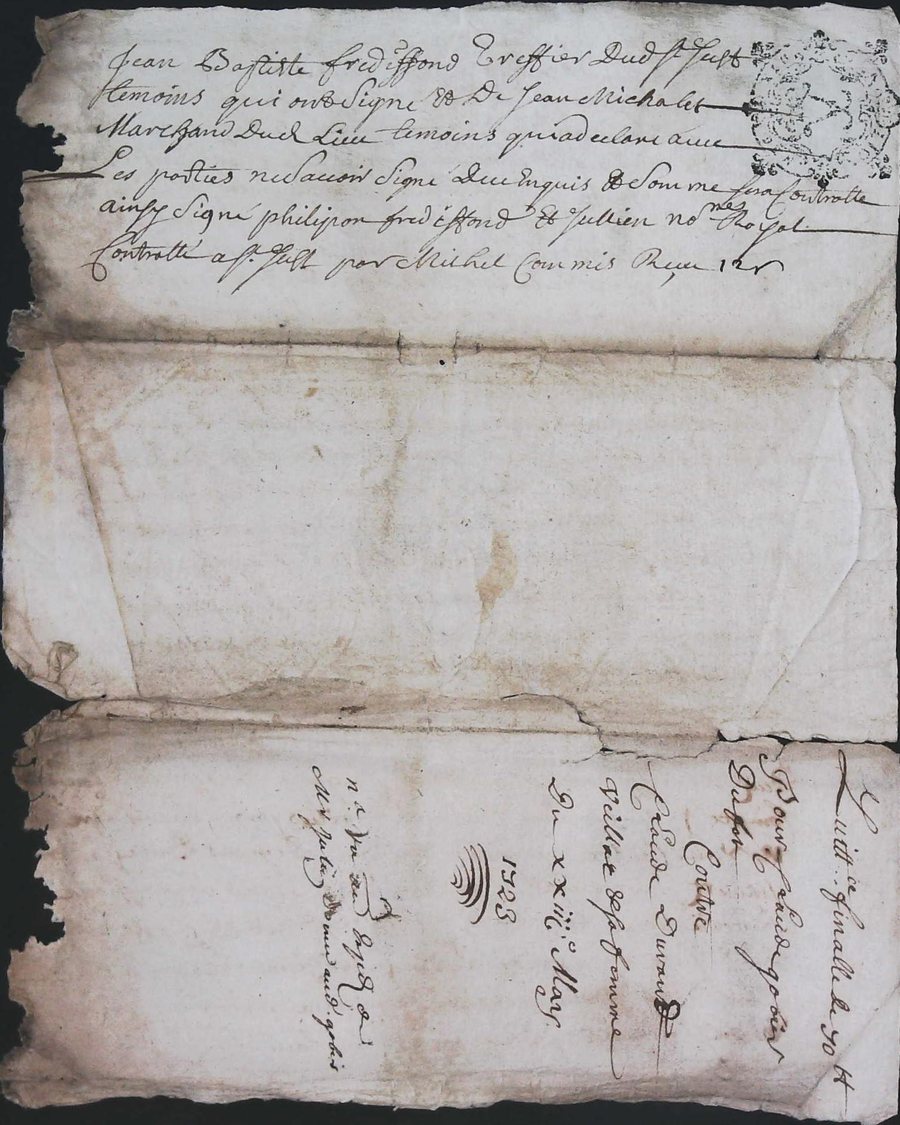 Jean Baptiste frediffond Greffier Dud st Just
temoins qui ont Signé Et De Jean Michalet
Marchand Dud Lieu temoins qui a declaré avec
Les parties ne Sacvoir Signé Deu Enquis & Somme Sera Controllé
ainsy Signé philipon frediffond Et Jullien no^re Royal
Controllé a st Just par Michel Commis Reçu 12s
Quitt^ce finalle de 90 tt
Pour Claude
Dufor
Contre
Claude Durand
veillat & sa femme
Du xxiii^e May
1723